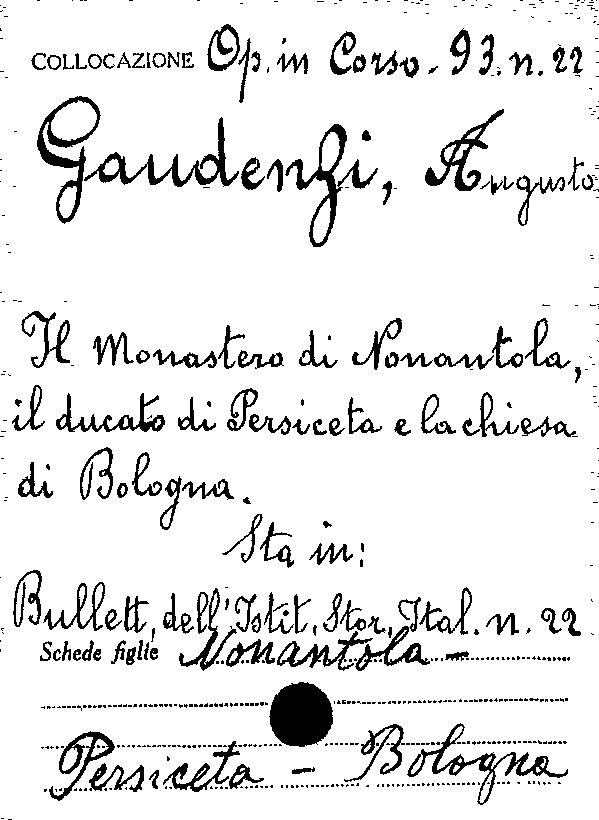 COLLOCAZIONE Op. in Corso - 93. n. 22
Gaudenzi, Augusto
Il Monastero di Nonantola,
il ducato di Persiceta e la chiesa
di Bologna.
Sta in:
Bullett, dell'Istit. Stor. Ital. n. 22
Schede figlie Nonantola -
Persiceta - Bologna